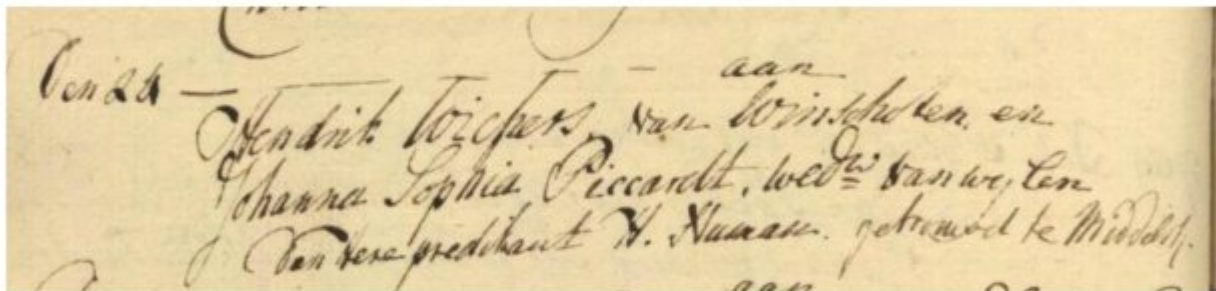 Den 24 — aan
Hendrik Wichers, van Winschoten, en
Johanna Sophia Piccardt, wed.w van wylen
Den Here predikant H. Numan. getrouwd te Middelst.
aan